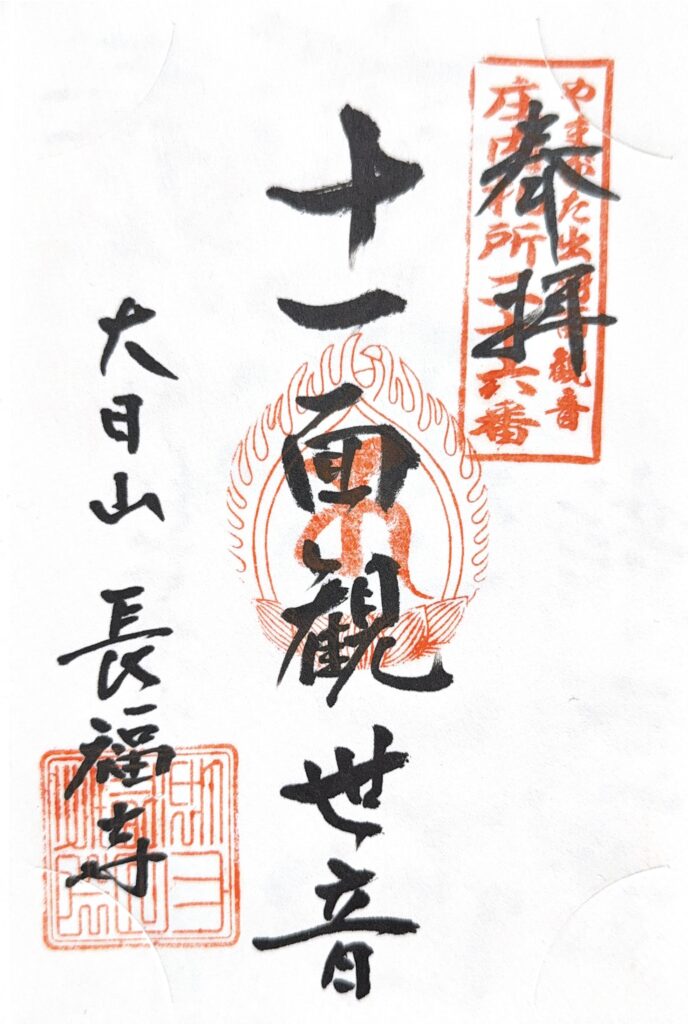 奉拝
やまがた出羽百観音
庄内札所三十六番
十一面観世音
大日山 長福寺